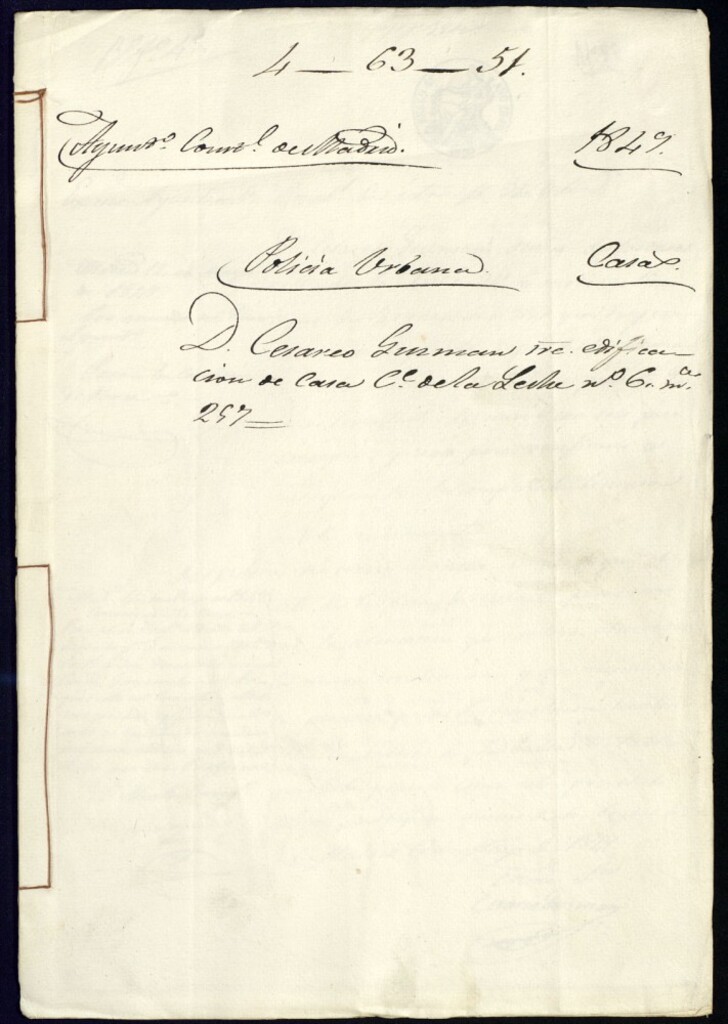 4 — 63 — 51.
Ayunto. Constl. de Madrid. 1847.
Policia Urbana. Casas.
D. Cesareo Guzman rre. edifica-
cion de Casa Ce. de la Leche no. 6. ma.
257=